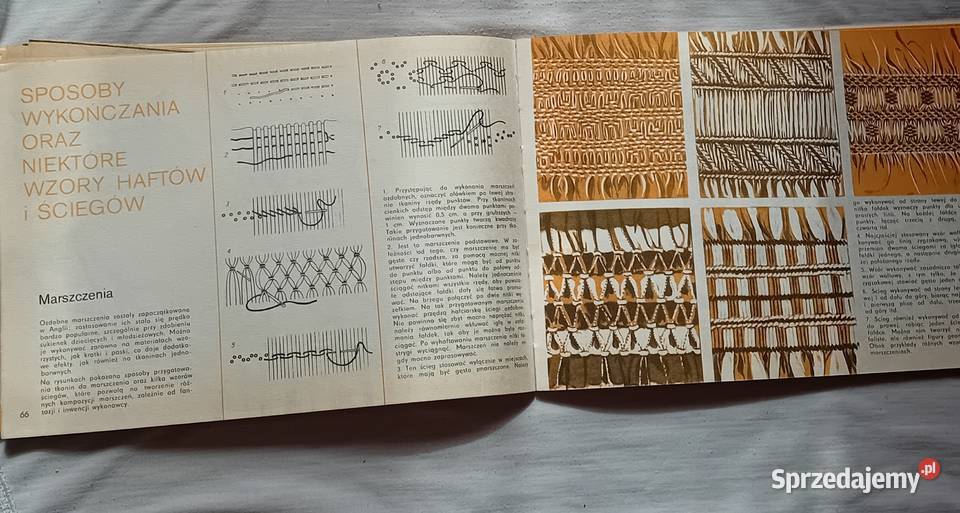 SPOSOBY
WYKOŃCZANIA
ORAZ
NIEKTÓRE
WZORY HAFTÓW
i ŚCIEGÓW
Marszczenia
Ozdobne marszczenia zostały zapoczątkowane
w Anglii; zastosowanie ich stało się prędko
bardzo popularne, szczególnie przy zdobieniu
sukienek dziecięcych i młodzieżowych. Można
je wykonywać zarówno na materiałach wzo-
rzystych, jak kratki i paski, co daje dodatko-
we efekty, jak również na tkaninach jedno-
barwnych.
Na rysunkach pokazano sposoby przygotowa-
nia tkanin do marszczenia oraz kilka wzorów
ściegów, które pozwolą na tworzenie róż-
nych kompozycji marszczeń, zależnie od fan-
tazji i inwencji wykonawcy.
66
1
2
3
4
5
6
7
1. Przystępując do wykonania marszczeń
ozdobnych, oznaczyć ołówkiem po lewej stro-
nie tkaniny rzędy punktów. Przy tkaninach
cienkich odstęp między dwoma punktami po-
winien wynosić 0,5 cm, a przy grubszych –
1 cm. Wyznaczone punkty tworzą kwadraty.
Takie przygotowanie jest konieczne przy tka-
ninach jednobarwnych.
2. Jest to marszczenie podstawowe. W za-
leżności od tego, czy marszczenie ma być
gęste czy rzadsze, za pomocą mocnej nitki
utworzyć fałdki, które mogą być od punktu
do punktu albo od punktu do połowy od-
stępu między punktami. Należy jednocześnie
ściągać nitkami wszystkie rzędy, aby powsta-
łe odstające fałdki dały się łatwo prasu-
wać. Na brzegu połączyć po dwie nitki wę-
zełkiem. Na tak przygotowanym marszczeniu
wykonywać przędzą hafciarską ściegi ozdobne.
Nie powinno się zbyt mocno naprężać nitki,
należy równomiernie wkłuwać igłę w zała-
mania fałdek, tak aby je można było roz-
ciągać. Po wyhaftowaniu marszczenia nitki fa-
strygi wyciągnąć. Marszczeń nie należy ni-
gdy mocno zaprasowywać.
3. Ten ścieg stosować wyłącznie w miejscach,
które mają być gęsto zmarszczone. Należy
go wykonywać od strony lewej do
nitką fałdek wyznaczy punkty dla
prostych linii. Na każdej fałdce
punkt, łącząc trzecią z drugą,
czwartą itd.
4. Najczęściej stosowany wzór wafl
konywać go linią zygzakową, wi
przemian dwoma ściegami w
fałdki jednego, a następnie drug
żej położonego rzędu.
5. Wzór wykonywać zasadniczo tak
wzór waflowy, z tym tylko, że
zygzakowej stawiać gęsto jeden
6. Ścieg wykonywany między lew
wej i od dołu do góry, biorąc naj
i pierwszą plisę od dołu, trzec
od góry itd.
7. Ścieg również wykonywany od
do prawej, robiąc jeden ścieg
fałdce. Można nim tworzyć linie
faliste, ale również figury geom
Obok przykłady różnych wzoró
marszczeniach.
Sprzedajemy.pl